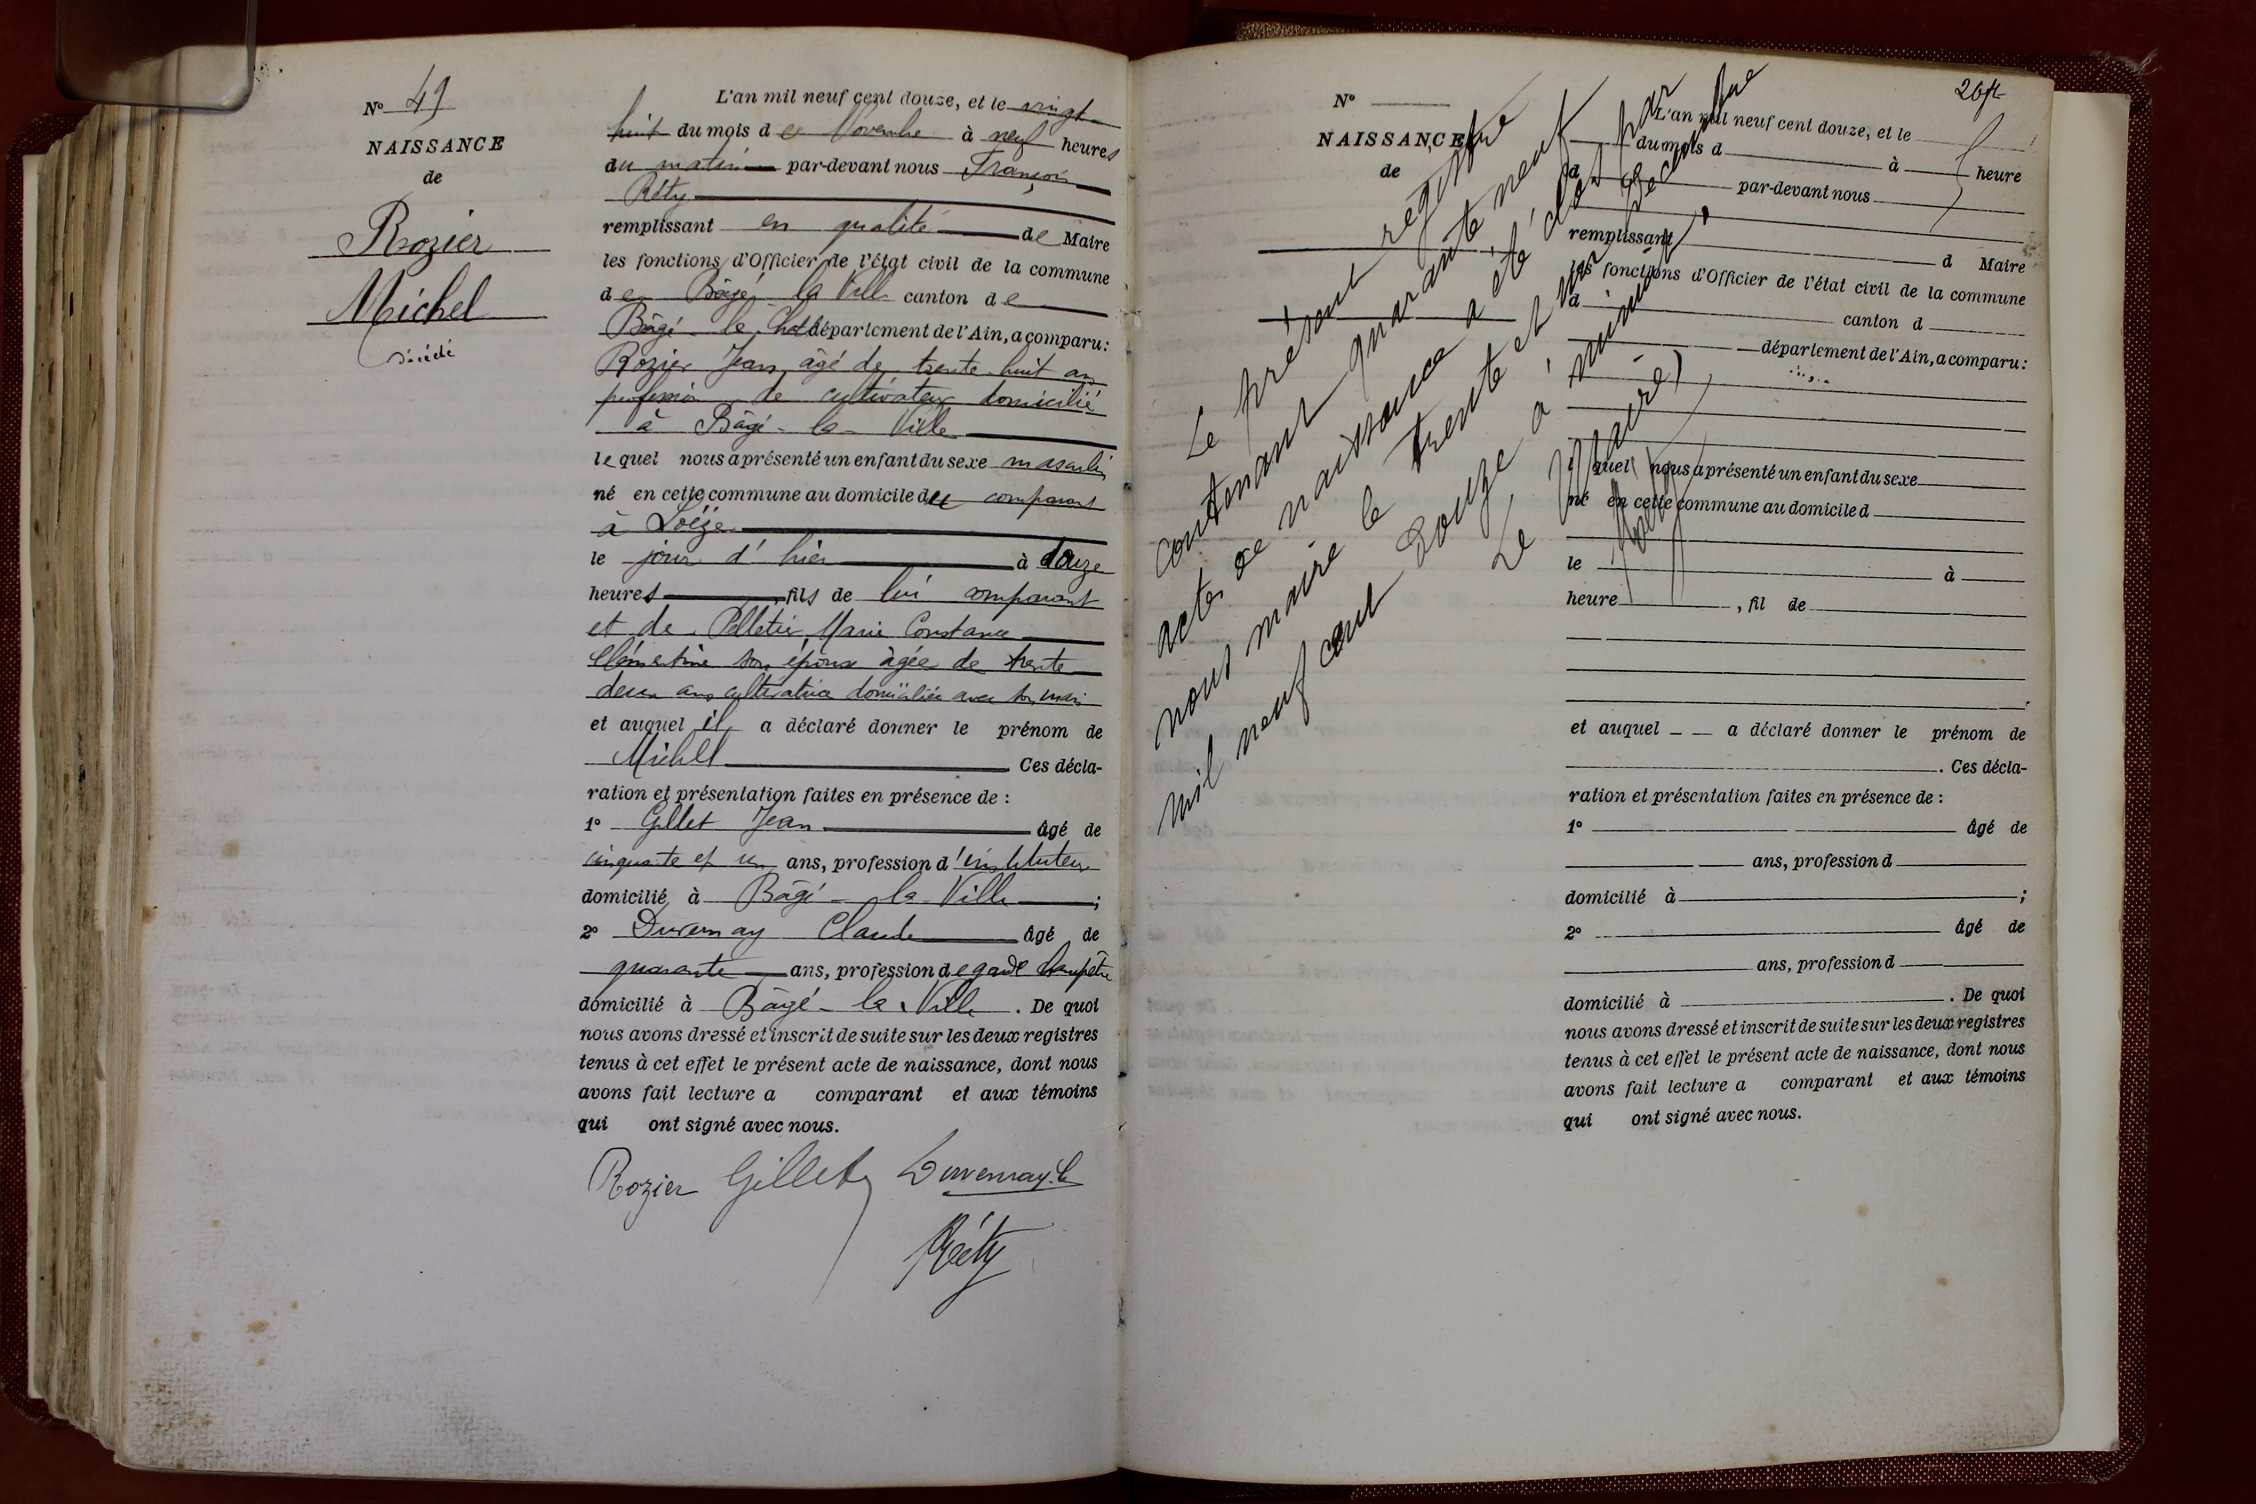 N° 49
NAISSANCE
de
Rozier
Michel
décédé
L'an mil neuf cent douze, et le vingt
huit du mois de Novembre à neuf heures
du matin par-devant nous François
Réty
remplissant en qualité de Maire
les fonctions d'Officier de l'état civil de la commune
de Bâgé-la-Ville canton de
Bâgé-le-Chatel département de l'Ain, a comparu :
Rozier Jean âgé de trente-huit ans
profession de cultivateur domicilié
à Bâgé-la-Ville
lequel nous a présenté un enfant du sexe masculin
né en cette commune au domicile du comparant
à Loëze
le jour d'hier à douze
heures fils de lui comparant
et de Pelletier Marie Constance
Clémentine son épouse âgée de trente
deux ans cultivatrice domiciliée avec son mari
et auquel il a déclaré donner le prénom de
Michel Ces décla-
ration et présentation faites en présence de :
1° Gillet Jean âgé de
cinquante et un ans, profession d'instituteur
domicilié à Bâgé-la-Ville ;
2° Duvernay Claude âgé de
quarante ans, profession de garde champêtre
domicilié à Bâgé-la-Ville . De quoi
nous avons dressé et inscrit de suite sur les deux registres
tenus à cet effet le présent acte de naissance, dont nous
avons fait lecture a comparant et aux témoins
qui ont signé avec nous.
Rozier Gillet Duvernay Cl
Réty
26
N°
NAISSANCE
de
L'an mil neuf cent douze, et le
du mois d à heure
d par-devant nous
remplissant d Maire
les fonctions d'Officier de l'état civil de la commune
d canton d
département de l'Ain, a comparu :
quel nous a présenté un enfant du sexe
né en cette commune au domicile d
le à
heure , fil de
et auquel a déclaré donner le prénom de
. Ces décla-
ration et présentation faites en présence de :
1° âgé de
ans, profession d
domicilié à ;
2° âgé de
ans, profession d
domicilié à . De quoi
nous avons dressé et inscrit de suite sur les deux registres
tenus à cet effet le présent acte de naissance, dont nous
avons fait lecture a comparant et aux témoins
qui ont signé avec nous.
Le présent registre
contenant quarante neuf
actes de naissance a été clos par
nous maire le trente et un Décembre
mil neuf cent douze à minuit,
Le Maire,
Réty